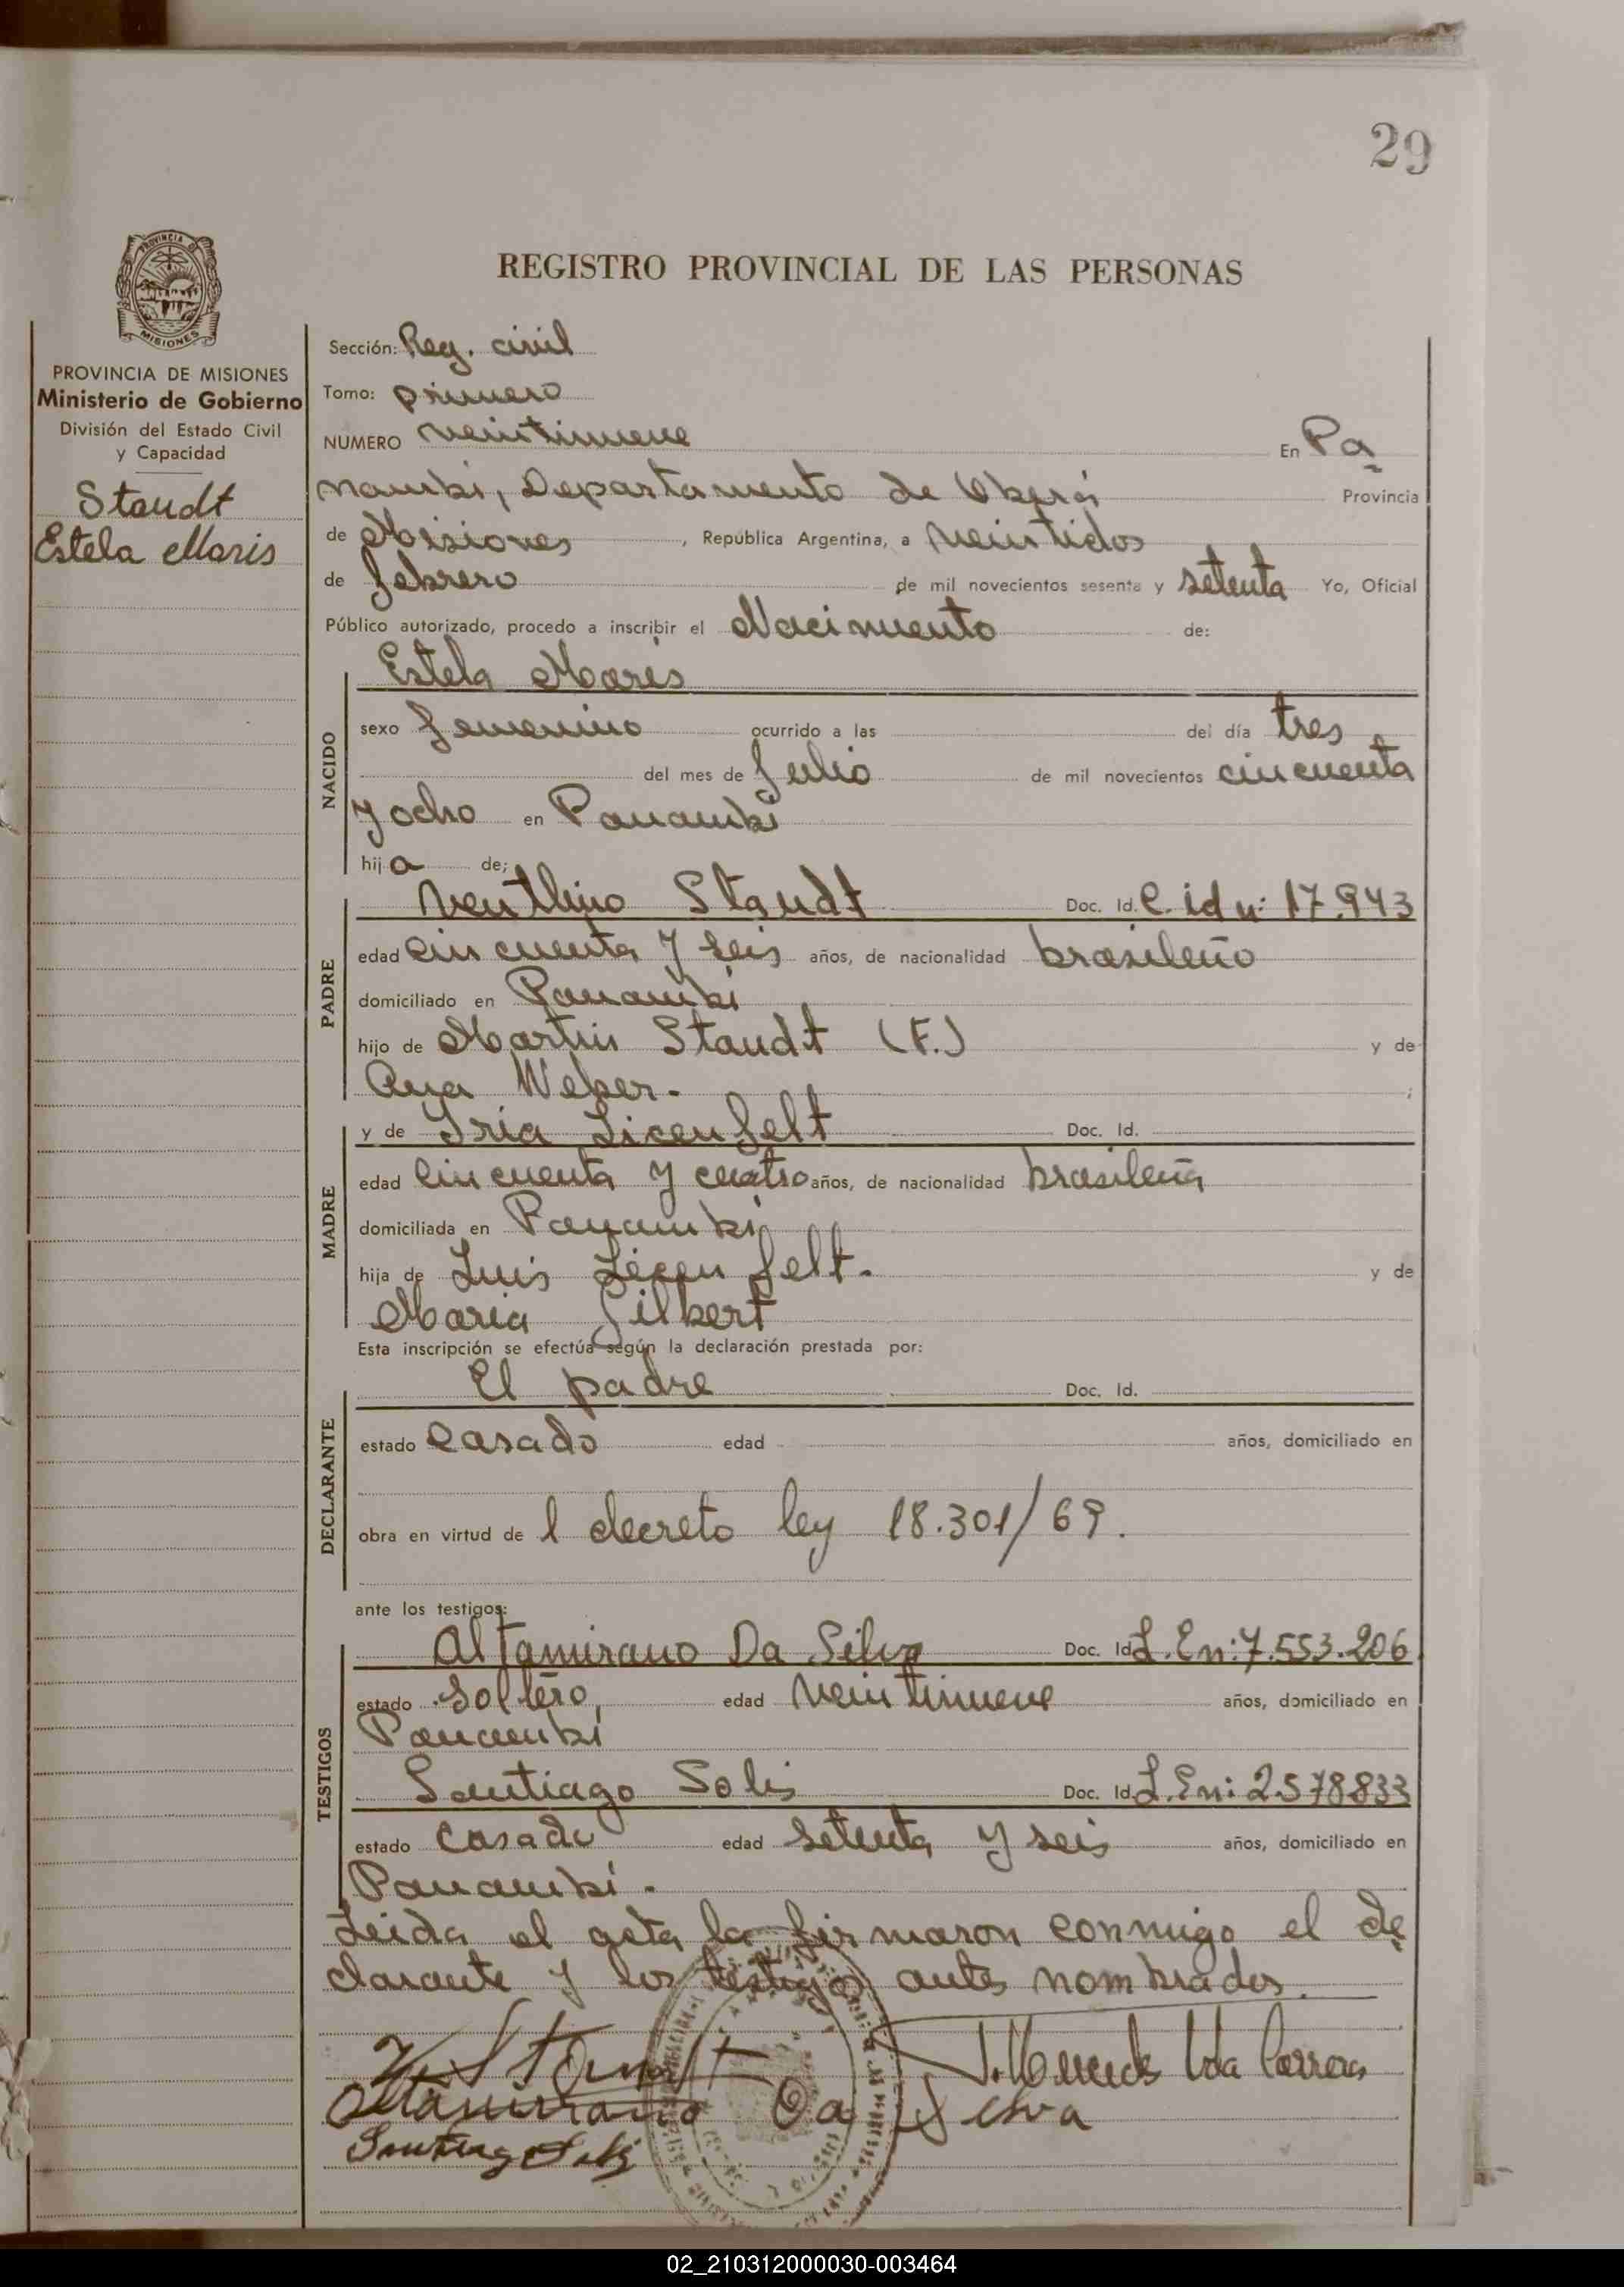 29
PROVINCIA
MISIONES
REGISTRO PROVINCIAL DE LAS PERSONAS
PROVINCIA DE MISIONES
Ministerio de Gobierno
División del Estado Civil
y Capacidad
Staudt
Estela Maris
Sección: Reg. civil
Tomo: primero
NUMERO veintinueve En Pa
nambi, Departamento de Oberá Provincia
de Misiones, República Argentina, a veintidos
de febrero de mil novecientos sesenta y setenta Yo, Oficial
Público autorizado, procedo a inscribir el Nacimiento de:
Estela Maris
NACIDO
sexo femenino ocurrido a las del día tres
del mes de Julio de mil novecientos cincuenta
y ocho en Panambi
hija de;
PADRE
Venthino Staudt Doc. Id. C. id n: 17.943
edad cincuenta y seis años, de nacionalidad brasileño
domiciliado en Panambi
hijo de Martin Staudt (F.) y de
Ana Weber. ;
MADRE
y de Iria Licenfelt Doc. Id.
edad cincuenta y cuatro años, de nacionalidad brasileña
domiciliada en Panambi
hija de Luis Licenfelt. y de
Maria Gilbert
Esta inscripción se efectúa según la declaración prestada por:
DECLARANTE
El padre Doc. Id.
estado casado edad años, domiciliado en
obra en virtud de l decreto ley 18.301/69.
ante los testigos:
TESTIGOS
Altamirano Da Silva Doc. Id L. En: 7.553.206
estado soltero, edad veintinueve años, domiciliado en
Panambí
Santiago Solis Doc. Id. L. En: 2.578833
estado casado edad setenta y seis años, domiciliado en
Panambí.
Leida el acta la firmaron conmigo el de
clarante y los testigos antes nombrados.
V. Staudt
Altamirano Da Silva
Santiago Solis
02_210312000030-003464